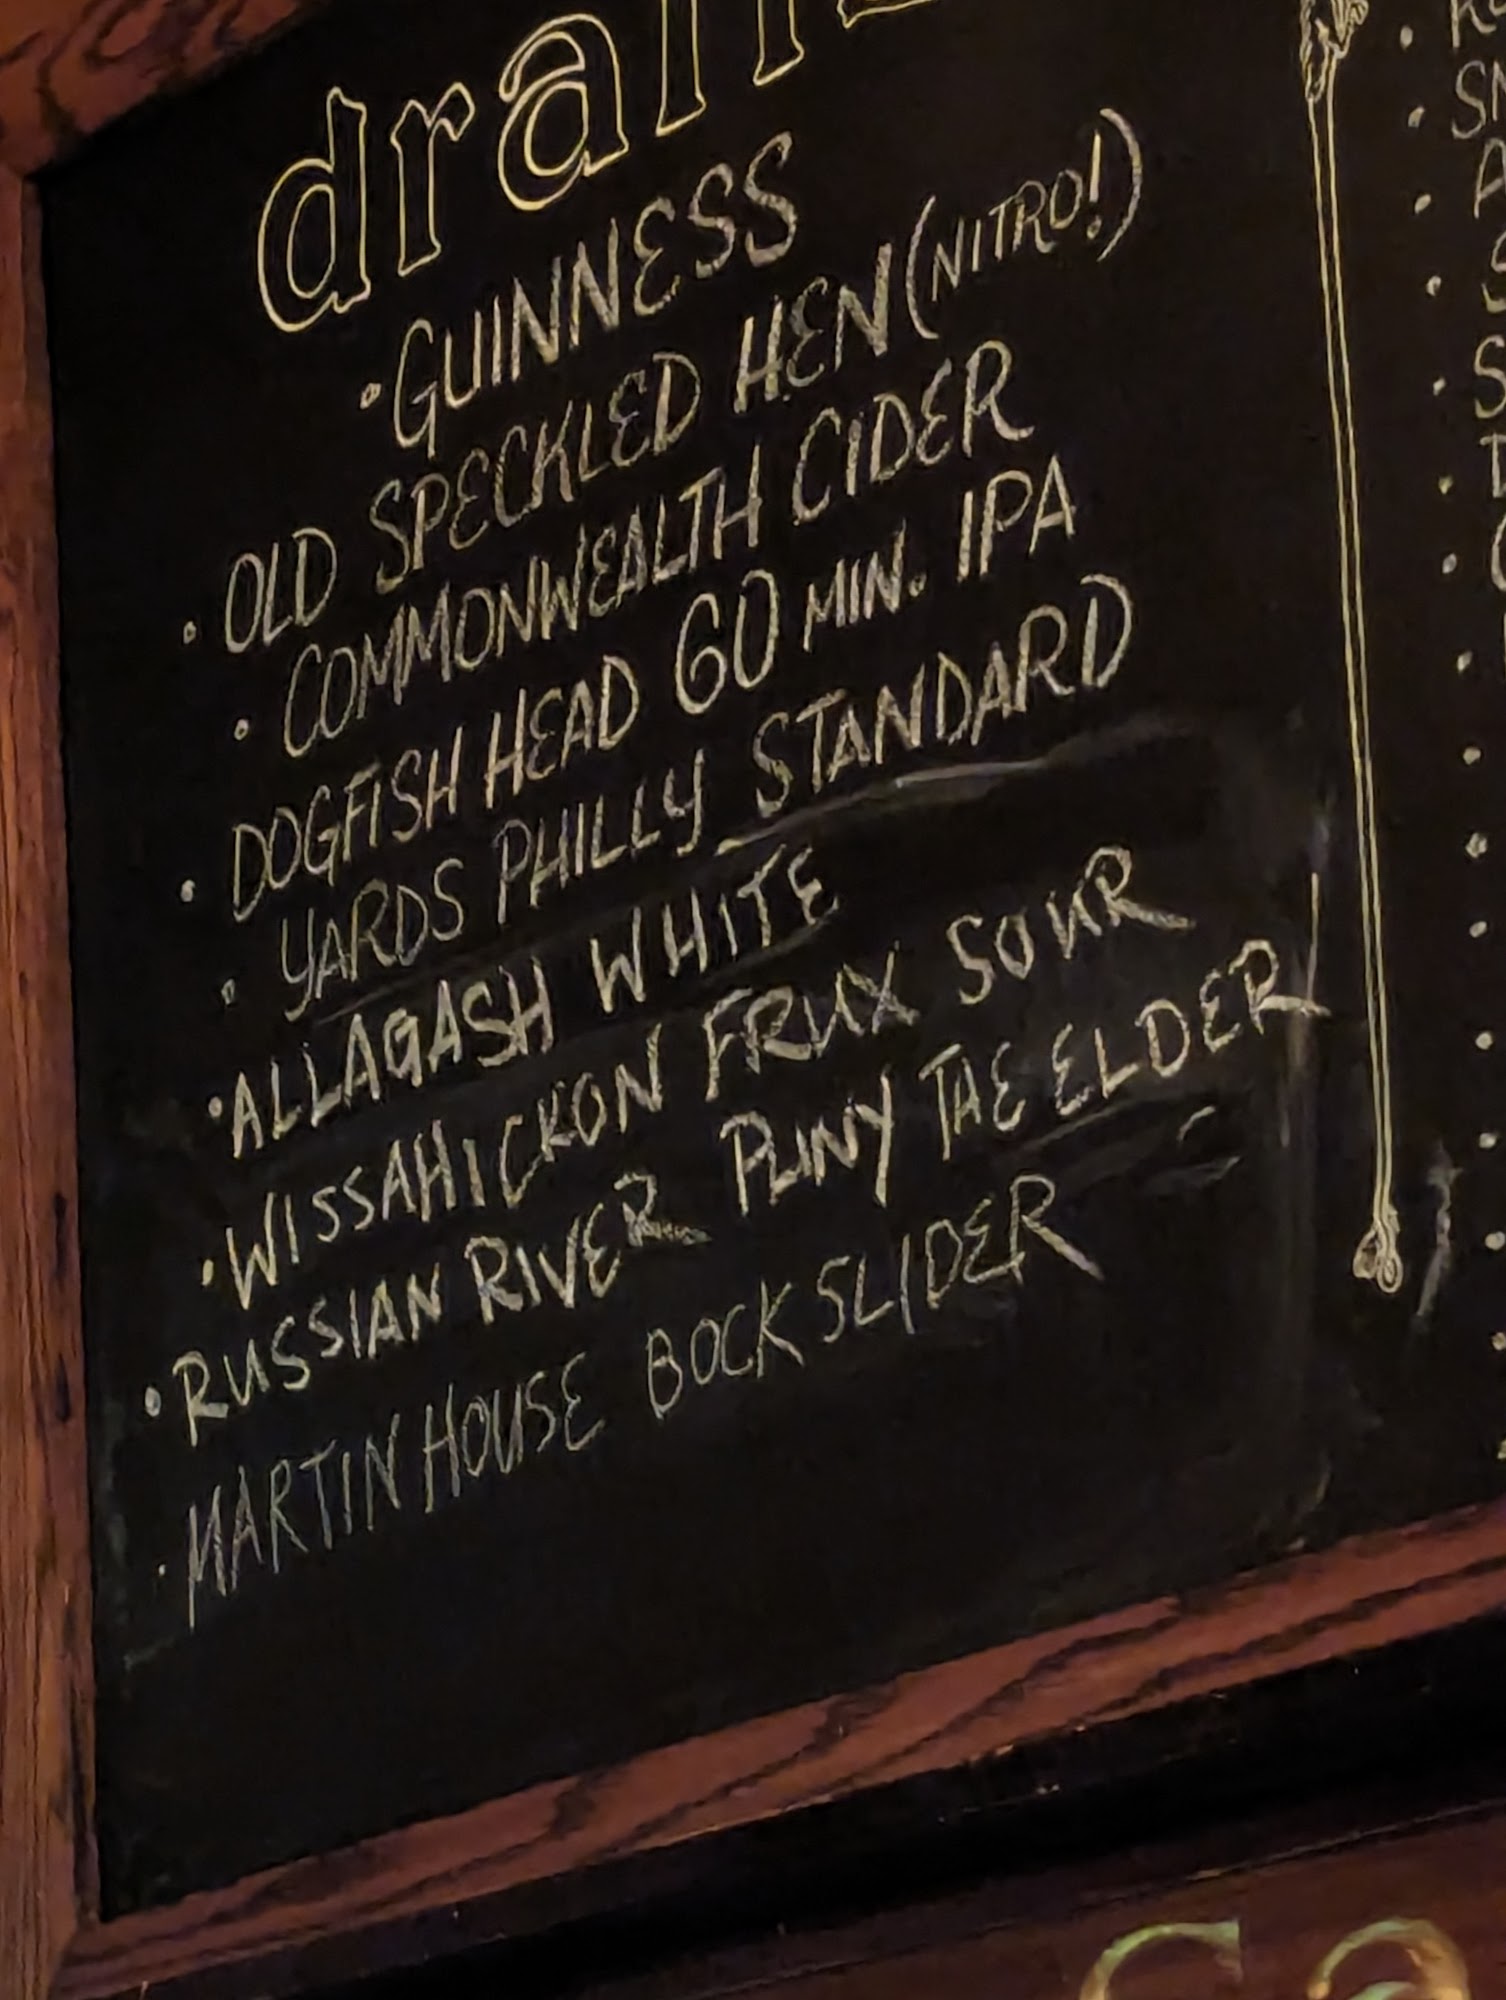 draft
• GUINNESS
• OLD SPECKLED HEN (NITRO!)
• COMMONWEALTH CIDER
• DOGFISH HEAD 60 MIN. IPA
• YARDS PHILLY STANDARD
• ALLAGASH WHITE
• WISSAHICKON FRUX SOUR
• RUSSIAN RIVER PLINY THE ELDER
• MARTIN HOUSE BOCK SLIDER